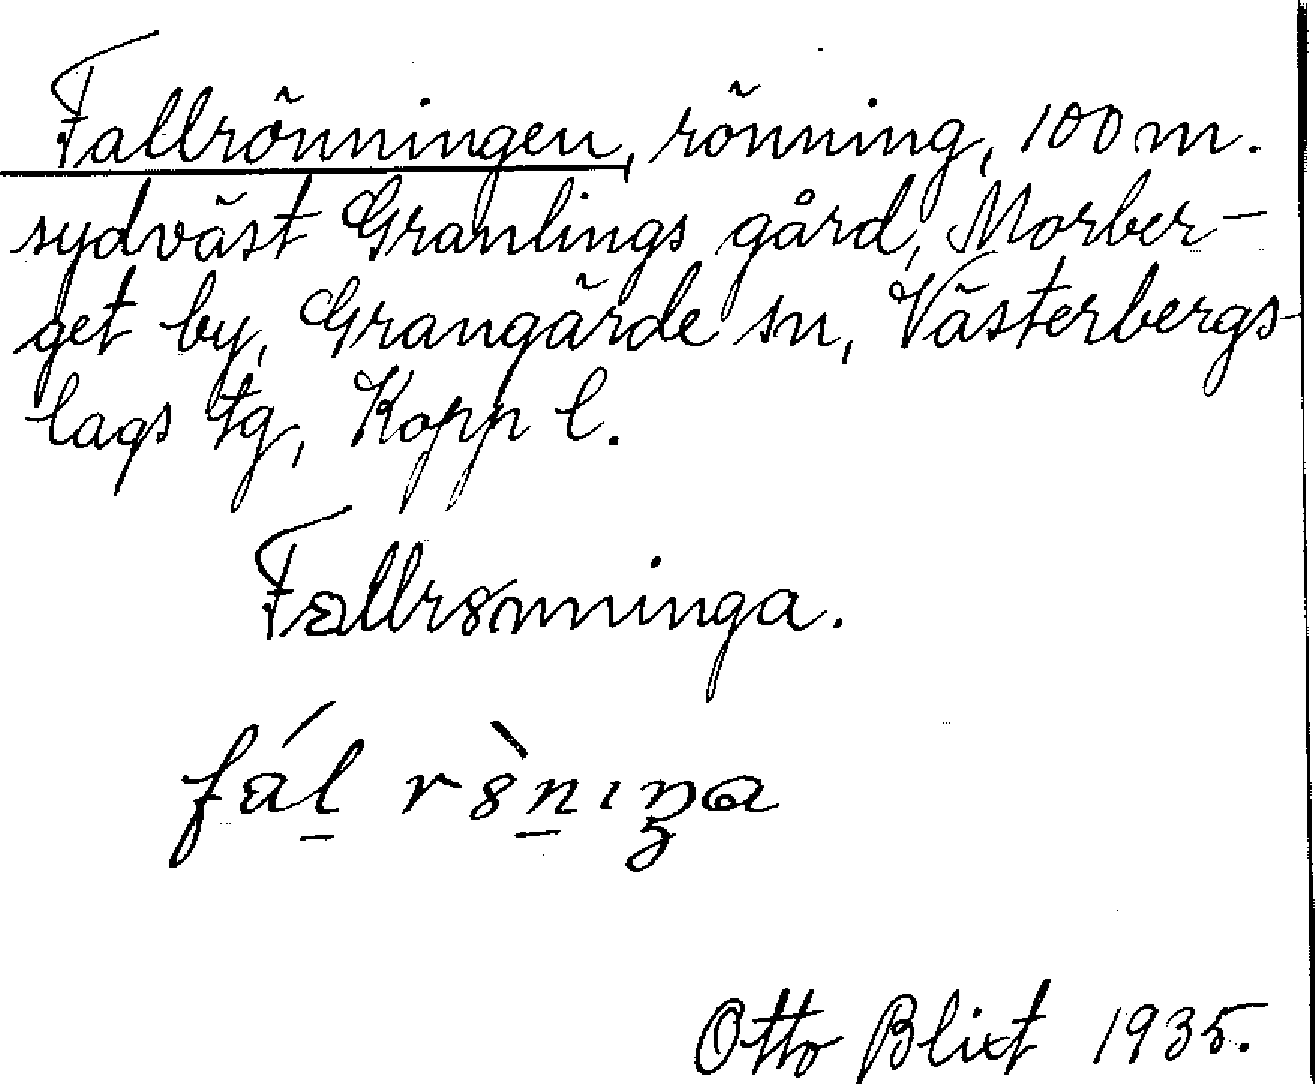 Fallrönningen, rönning, 100 m.
sydväst Granlings gård, Morber-
get by, Grangärde sn, Västerbergs-
lags tg, Kopp l.
Fallrönninga.
Otto Blixt 1935.